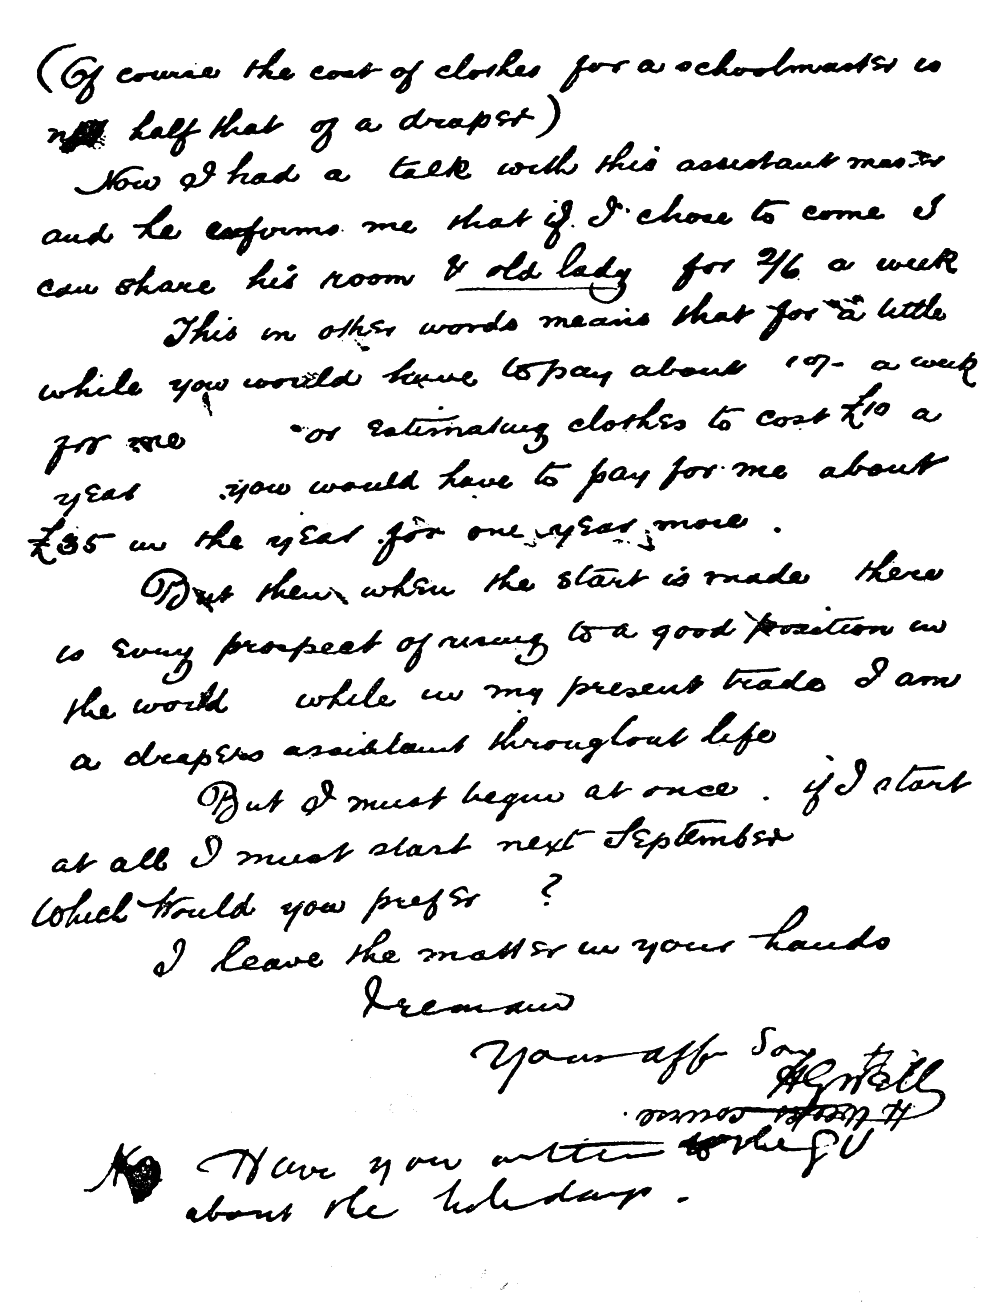 (Of course the cost of clothes for a schoolmaster is
not half that of a draper)
Now I had a talk with this assistant master
and he informs me that if I chose to come I
can share his room & old lady for 2/6 a week
This in other words means that for a little
while you would have to pay about 10/- a week
for me or estimating clothes to cost £10 a
year you would have to pay for me about
£35 in the year for one year more.
But then when the start is made there
is every prospect of rising to a good position in
the world while in my present trade I am
a drapers assistant throughout life
But I must begin at once. if I start
at all I must start next September
Which would you prefer ?
I leave the matter in your hands
I remain
Your aff Son
H G Wells
Have you written to the G V
about the holidays.